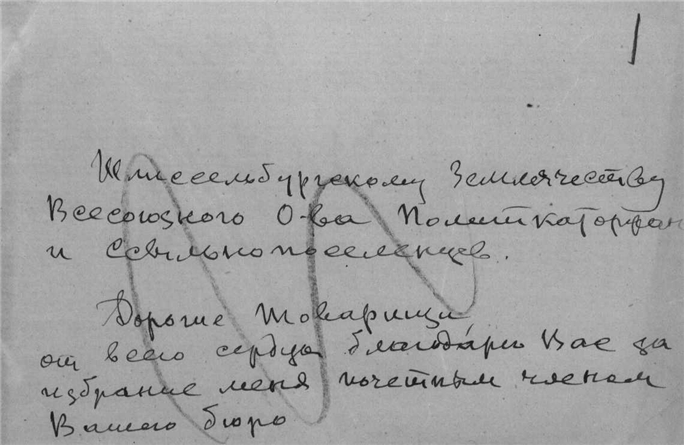 1
Шлиссельбургскому Землячеству
Всесоюзного О-ва Политкаторжан
и Ссыльнопоселенцев.
Дорогие товарищи
от всего сердца благодарю Вас за
избрание меня почетным членом
Вашего бюро